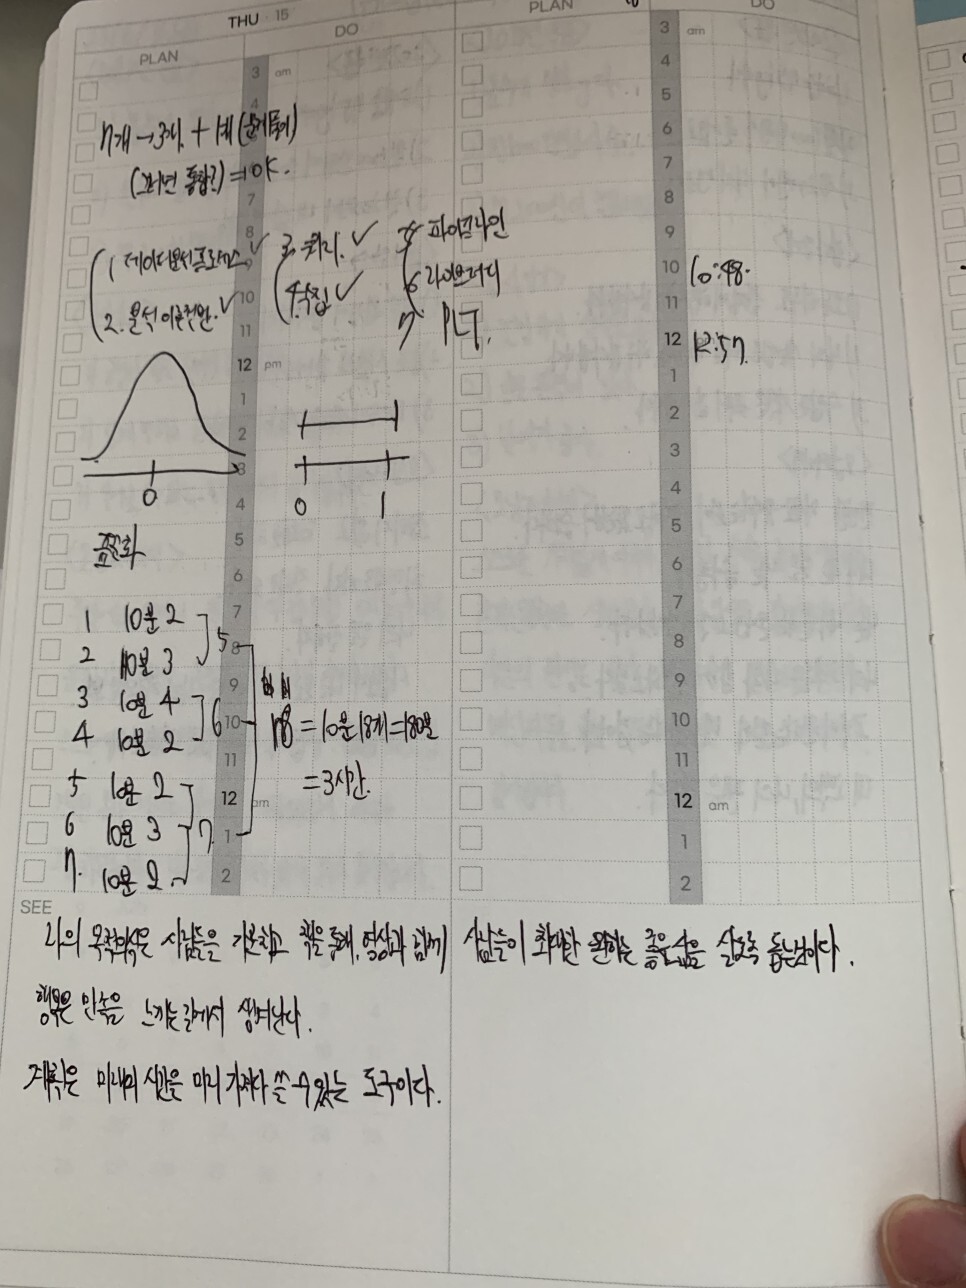 THU 15
PLAN
DO
PLAN
DO
7개 → 3개 + 1개
(그러면 통합?) = OK.
1. 데이터분석프로세스 ✓
2. 분석이론전반 ✓
3. 쿼리 ✓
4. 수집 ✓
5 파이프라인
6 라이브러리
7
10:48
12:57
0
0 1
표준화
1 10분 2
2 10분 3
5
3 10분 4
4 10분 2
6
5 10분 2
6 10분 3
7. 10분 2
7
18 = 10분 18개 = 180분
= 3시간.
3 am
4
7
8
10
11
12 pm
1
2
3
4
5
6
7
8
9
10
11
12 am
1
2
3 am
4
5
6
7
8
9
10
11
12
1
2
3
4
5
6
7
8
9
10
11
12 am
1
2
SEE
나의 목적의식은 사람들을 기록하고 책을 통해, 영상과 함께 사람들이 최대한 원하는 좋은 삶을 살도록 돕는 것이다.
행복은 만족을 느끼는 것에서 생겨난다.
계획은 미래의 시간을 미리 가져다 쓸 수 있는 도구이다.